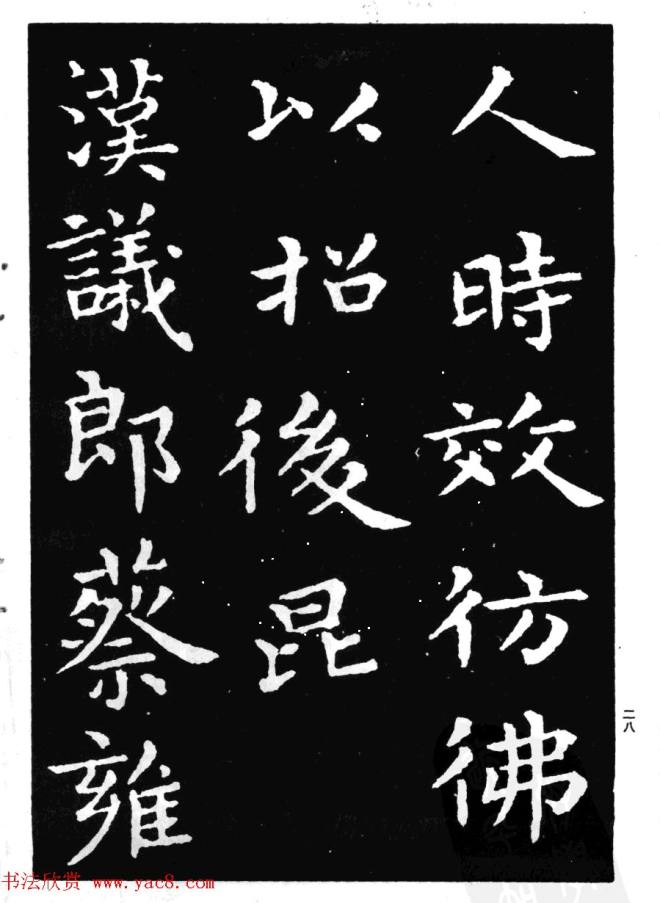 人時效彷彿
以招後昆
漢議郎蔡雍
二八
书法欣赏 www.yac8.com